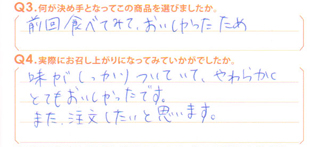 Q3.何が決め手となってこの商品を選びましたか。
前回食べてみて、おいしかったため
Q4.実際にお召し上がりになってみていかがでしたか。
味がしっかりついていて、やわらかく
とてもおいしかったです。
また、注文したいと思います。